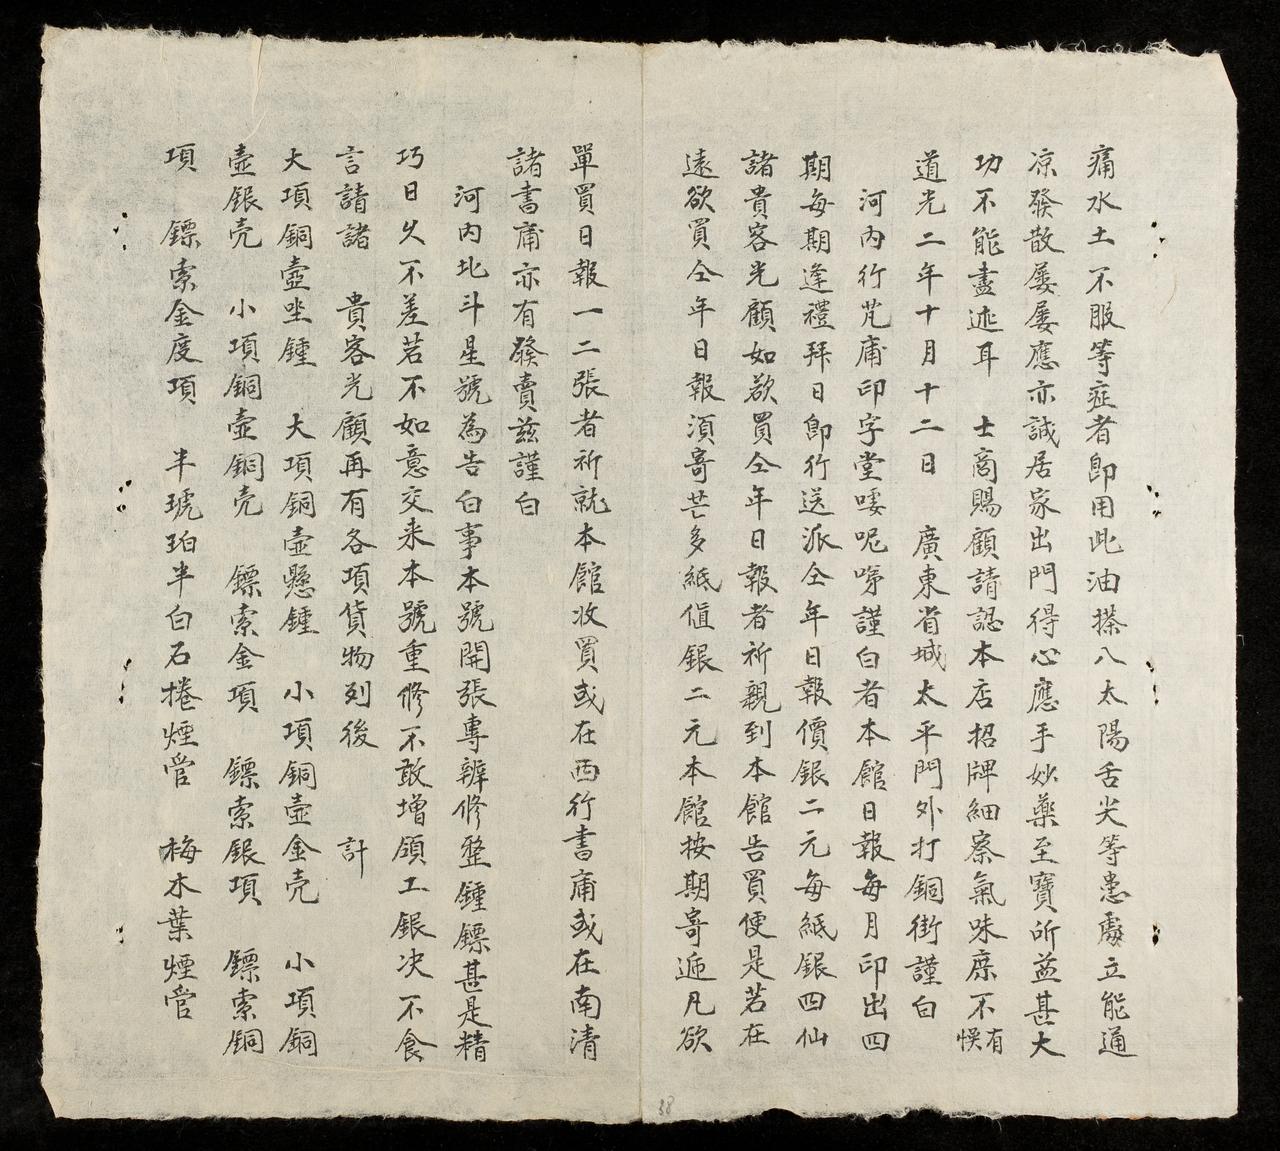 痛水土不服等症者卽用此油搽八太陽舌尖等患處立能通
凉發散屡屡應亦誠居家出門得心應手妙藥至寶所益甚大
功不能盡述耳　士商賜顧請認本店招牌細察氣味庶不有悞
道光二年十月十二日　廣東省城太平門外打銅街謹白
河內行芃庯印字堂喽呢㗣謹白者本館日報每月印出四
期每期逢禮拜日卽行送派仝年日報價銀二元每紙銀四仙
諸貴客光顧如欲買仝年日報者祈親到本館告買便是若在
遠欲買仝年日報湏寄芒多紙値銀二元本館按期寄遞凡欲
單買日報一二張者祈就本館收買或在西行書庯或在南清
諸書庯亦有發賣兹謹白
河内北斗星號為告白事本號開張專辦修整鍾鏢甚是精
巧日久不差若不如意交来本號重修不敢增領工銀决不食
言請諸　貴客光顧再有各項貨物列後　計
大項銅壺坐鍾　大項銅壺懸鍾　小項銅壺金壳　小項銅
壺銀壳　小項銅壺銅壳　鏢索金項　鏢索銀項　鏢索銅
項　鏢索金度項　半琥珀半白石捲煙管　梅木葉煙管
38